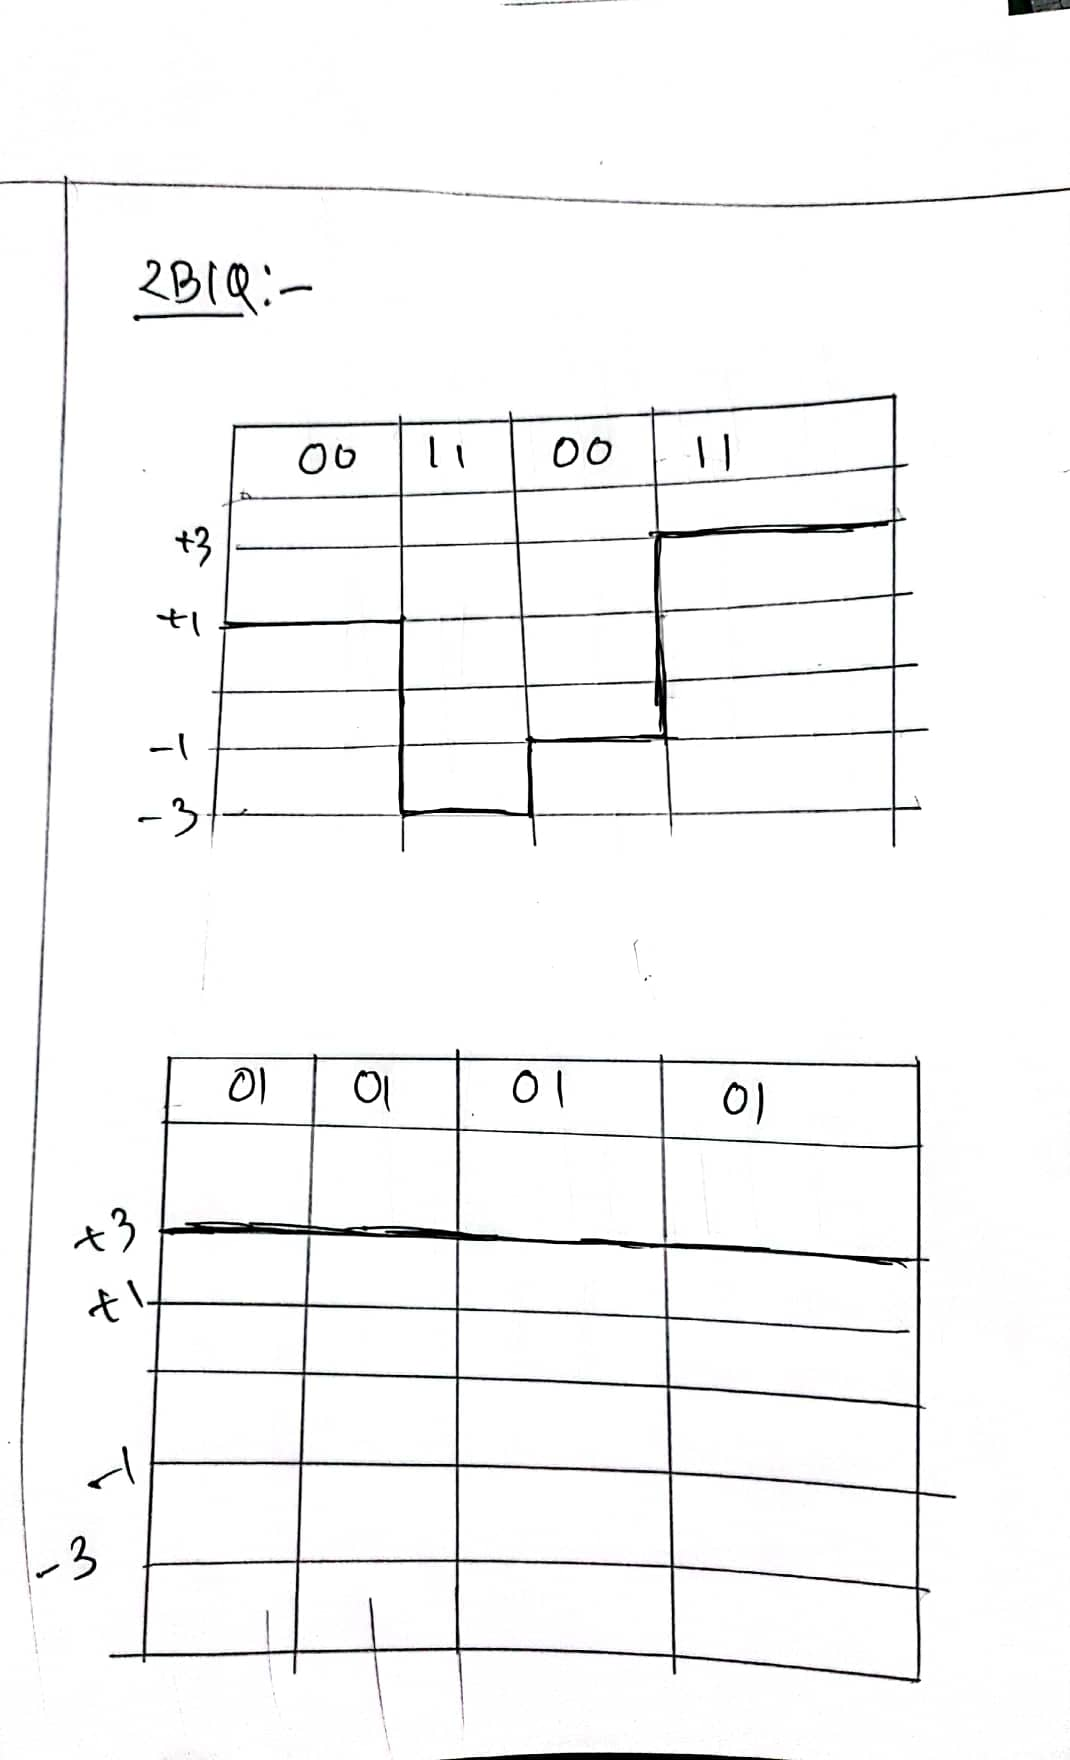 2B1Q:-
00 11 00 11
+3
+1
-1
-3
01 01 01 01
+3
+1
-1
-3